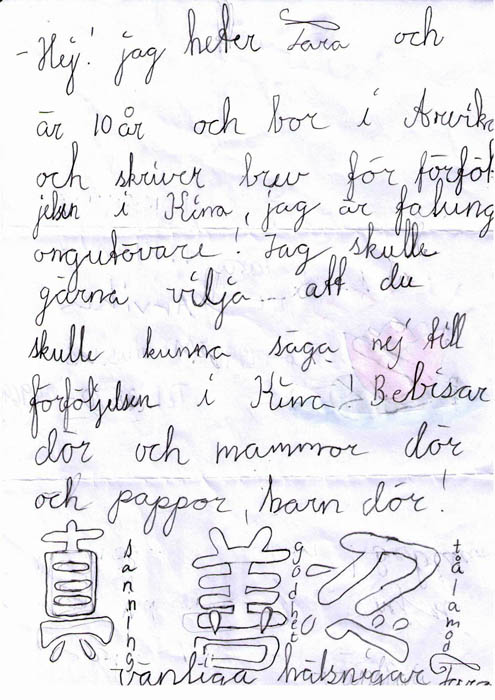 - Hej! jag heter Tara och
är 10 år och bor i Arvika
och skriver brev för förföl
jelsen i Kina, jag är falung
ongutövare! Jag skulle
gärna vilja att du
skulle kunna säga nej till
förföljelsen i Kina! Bebisar
dör och mammor dör
och pappor, barn dör!
真 善 忍
sanning
godhet
tålamod
vänliga hälsnigar Tara